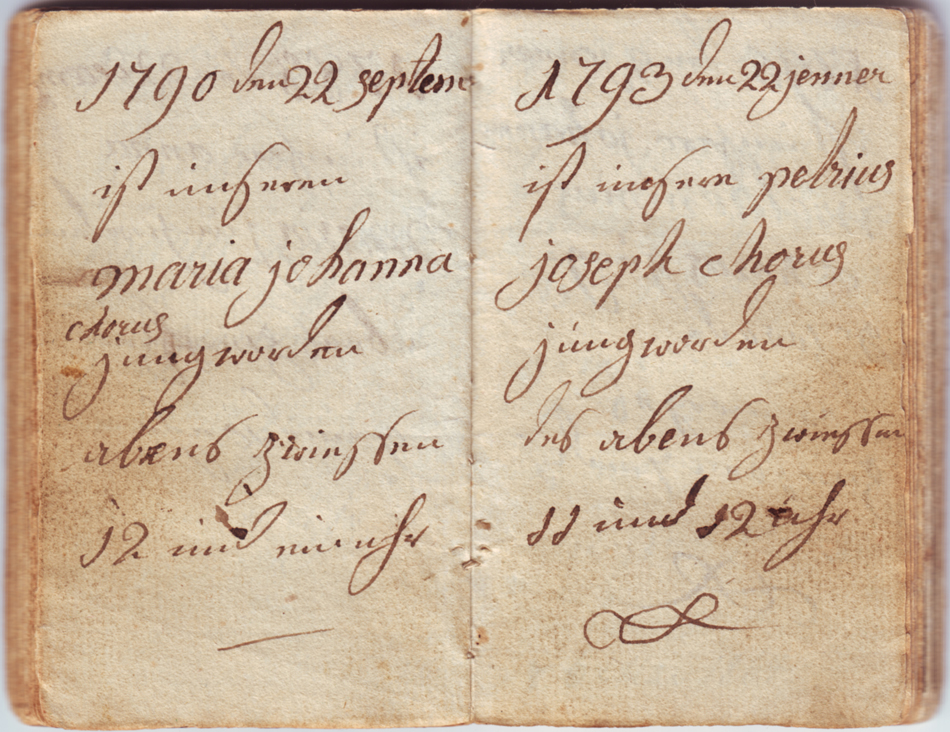 1790 den 22 septem
ist unseren
maria johanna
chorus
jungworden
abens zwiessen
12 und ein uhr
1793 den 22 jenner
ist unsere petrius
joseph chorus
jungworden
des abens zwiessen
11 und 12 uhr